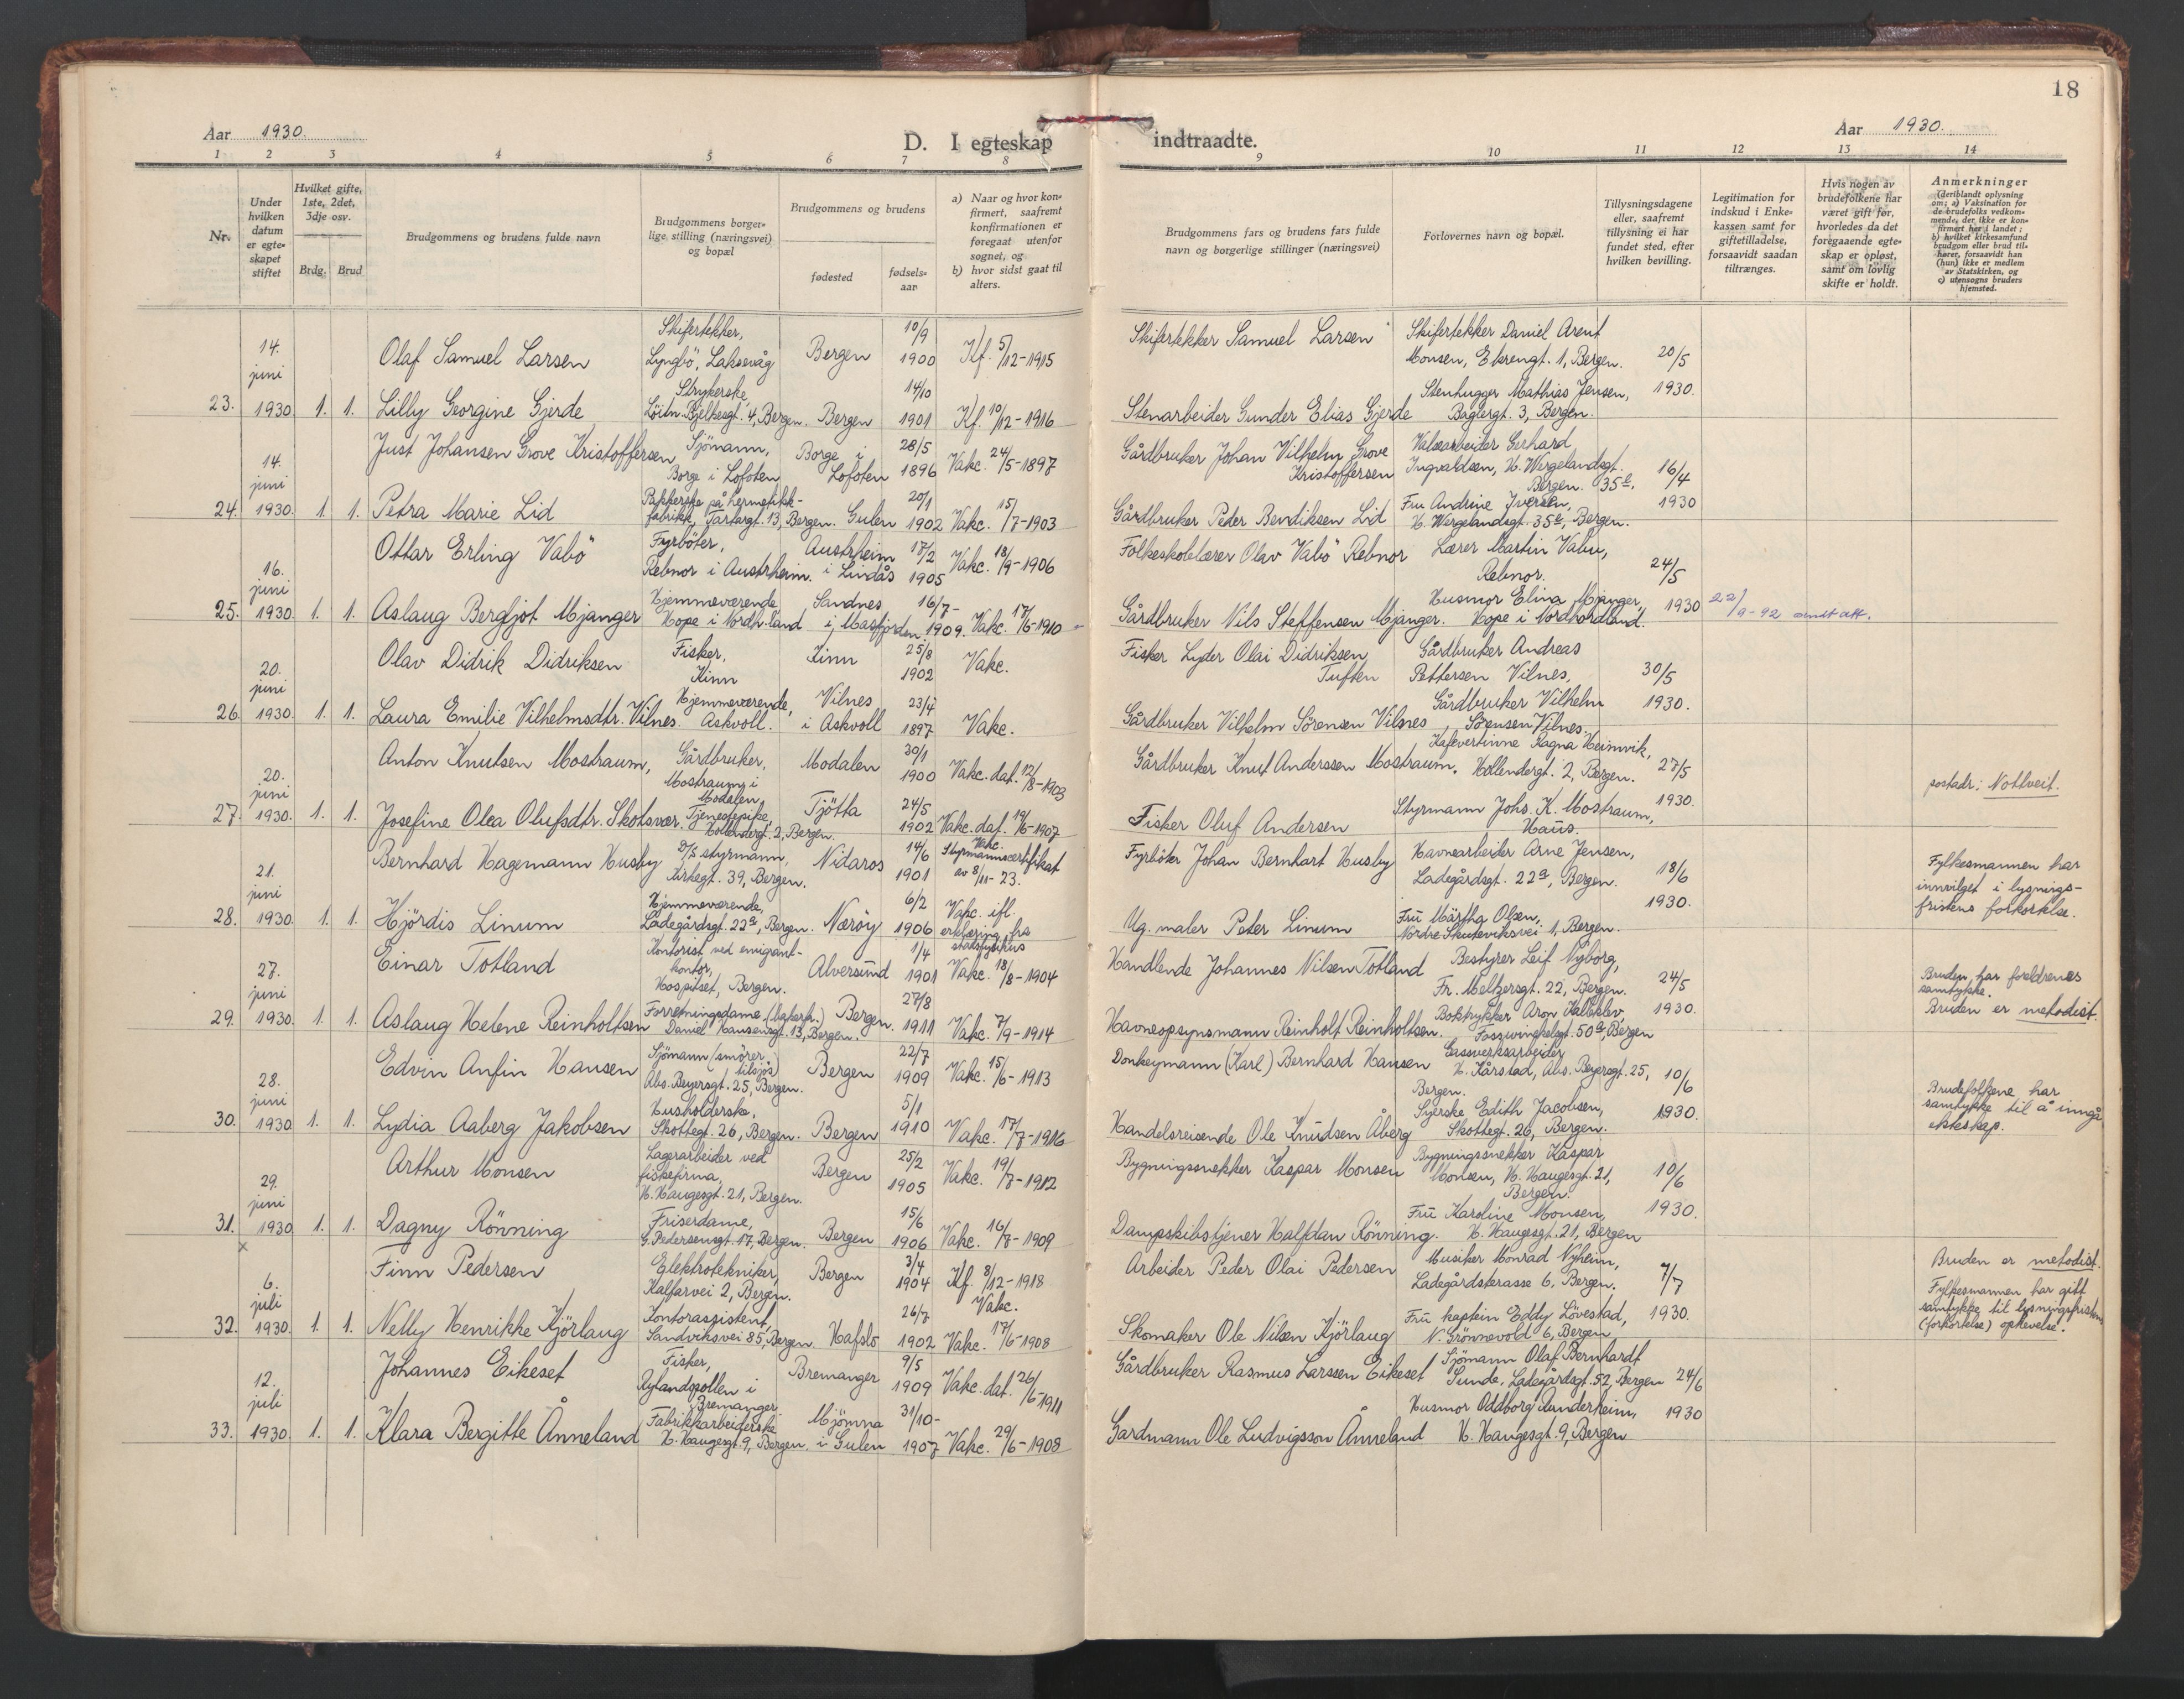 18
Aar 1930.
D. I egteskap indtraadte.
Aar 1930.
1 2 3 4 5 6 7 8 9 10 11 12 13 14
Nr.
Under hvilken datum er egte-skapet stiftet
Hvilket gifte, 1ste, 2det, 3dje osv.
Brdg. Brud
Brudgommens og brudens fulde navn
Brudgommens borger-lige stilling (næringsvei) og bopæl
Brudgommens og brudens
fødested
fødsels-aar
a) Naar og hvor kon-firmert, saafremt konfirmationen er foregaat utenfor sognet, og
b) hvor sidst gaat til alters.
Brudgommens fars og brudens fars fulde navn og borgerlige stillinger (næringsvei)
Forlovernes navn og bopæl.
Tillysningsdagene eller, saafremt tillysning ei har fundet sted, efter hvilken bevilling.
Legitimation for indskud i Enke-kassen samt for giftetilladelse, forsaavidt saadan tiltrænges.
Hvis nogen av brudefolkene har været gift før, hvorledes da det foregaaende egte-skap er opløst, samt om lovlig skifte er holdt.
Anmerkninger
(deriblandt oplysning om: a) Vaksination for de brudefolks vedkom-mende, der ikke er kon-firmert her i landet; b) hvilket kirkesamfund brudgom eller brud til-hører, forsaavidt han (hun) ikke er medlem av Statskirken, og c) utensogns bruders hjemsted.
23. 14. juni 1930. 1. 1.
Olaf Samuel Larsen
Skifertekker, Lyngbö, Laksevåg
Bergen 10/9 1900 Kf. 5/12-1915
Skifertekker Samuel Larsen
Skifertekker Daniel Arent Monsen, Ekrengt. 1, Bergen.
20/5 1930.
Lilly Georgine Gjerde
Strykerske, Löitn. Bjelkesgt. 4, Bergen.
Bergen 14/10 1901 Kf. 10/12-1916
Stenarbeider Gunder Elias Gjerde
Stenhugger Mathias Jensen, Baglergt. 3, Bergen.
24. 14. juni 1930. 1. 1.
Just Johansen Grove Kristoffersen
Sjömann, Borge i Lofoten
Borge i Lofoten 28/5 1896 Vakc. 24/5-1897
Gårdbruker Johan Vilhelm Grove Kristoffersen
Gerhard Ingvaldsen, H. Wergelandsgt. 35 Bergen.
16/4 1930
Petra Marie Lid
Pakkerske på hermetikk-fabrikk, Tartargt. 13, Bergen.
Gulen 20/1 1902 Vakc. 15/7-1903
Gårdbruker Peder Bendiksen Lid
Fru Andrine Iversen, H. Wergelandsgt. 35, Bergen.
25. 16. juni 1930. 1. 1.
Ottar Erling Vabö
Fyrböter, Rebnor i Austrheim.
Austrheim i Lindås 17/2 1905 Vakc. 18/9-1906
Folkeskolelærer Olav Vabö Rebnor
Lærer Martin Vabu, Rebnor.
24/5 1930
Aslaug Bergljot Mjanger
Hjemmeværende Hope i Nordh.land
Sandnes i Masfjorden 16/7-1909. Vakc. 17/6-1910
Gårdbruker Nils Steffensen Mjanger.
Husmor Elina Mjanger, Hope i Nordhordland.
22/9-92 omdt att.
26. 20. juni 1930. 1. 1.
Olav Didrik Didriksen
Fisker, Kinn
Kinn 25/8 1902 Vakc.
Fisker Lyder Olai Didriksen Tuften
Gårdbruker Andreas Pettersen Vilnes,
30/5 1930.
Laura Emilie Vilhelmsdtr. Vilnes.
Hjemmeværende, Askvoll.
Vilnes i Askvoll 23/4 1897 Vakc.
Gårdbruker Vilhelm Sörensen Vilnes
Gårdbruker Vilhelm Sörensen Vilnes.
27. 20. juni 1930. 1. 1.
Anton Knutsen Mostraum,
Gårdbruker, Mostraum i Modalen
Modalen 30/1 1900 Vakc. dat. 12/8-1903
Gårdbruker Knut Anderssen Mostraum.
Kafevertinne Ragna Heimvik, Hollendergt. 2, Bergen.
27/5 1930.
postadr: Nottveit.
Josefine Olea Olufsdtr. Skotsvær.
Tjenestepike, Hollendergt. 2, Bergen.
Tjötta 24/5 1902 Vakc. dat. 19/6-1907
Fisker Oluf Andersen
Styrmann Johs. K. Mostraum, Haus.
28. 21. juni 1930. 1. 1.
Bernhard Hagemann Husby
D/S styrmann, Kirkegt. 39, Bergen.
Nidaros 14/6 1901 Vakc. Styrmannscertifikat av 8/11-23.
Fyrböter Johan Bernhart Husby
Havnearbeider Arne Jensen, Ladegårdsgt. 22a, Bergen.
18/6 1930.
Fylkesmannen har innvilget i lysnings-fristens forkortelse.
Hjördis Linum
Hjemmeværende, Ladegårdsgt. 22a, Bergen.
Næröy 6/2 1906 Vakc. ifl. erklæring fra statsfysikus
Ug. maler Peter Linum
Fru Märtha Olsen, Nordre Skuteviksvei 1, Bergen.
29. 27. juni 1930. 1. 1.
Einar Totland
Kontorist ved emigant-kontor, Hospitset, Bergen.
Alversund 1/4 1901 Vakc. 18/8-1904
Handlende Johannes Nilsen Totland
Bestyrer Leif Nyborg, Fr. Meltzersgt. 22, Bergen.
24/5 1930.
Bruden har foreldrenes samtykke.
Bruden er metodist.
Aslaug Helene Reinholtsen
Forretningsdame (bakerfr.) Daniel Hansensgt. 13, Bergen.
Bergen. 27/8 1911 Vakc. 7/9-1914
Havneopsynsmann Reinholt Reinholtsen.
Boktrykker Aron Kalleklev, Fosswinckelsgt. 50a, Bergen
30. 28. juni 1930 1. 1.
Edvin Anfin Hansen
Sjömann (smörer tilsjös) Abs. Beyersgt. 25, Bergen.
Bergen 22/7 1909 Vakc. 15/6-1913
Donkeymann (Karl) Bernhard Hansen
Gassverksarbeider H. Kårstad, Abs. Beyersgt. 25, Bergen.
10/6 1930.
Brudefolkene har samtykke til å inngå ekteskap.
Lydia Aaberg Jakobsen
Husholderske, Skottegt. 26, Bergen.
Bergen 5/1 1910 Vakc. 17/7-1916
Handelsreisende Ole Knudsen Åberg
Syerske Edith Jacobsen, Skottegt. 26, Bergen.
31. 29. juni 1930 1. 1.
Arthur Monsen
Lagerarbeider ved fiskefirma, H. Haugesgt. 21, Bergen.
Bergen 25/2 1905 Vakc. 19/7-1912
Bygningssnekker Kaspar Monsen
Bygningssnekker Kaspar Monsen, H. Haugesgt. 21, Bergen.
10/6 1930.
Dagny Rönning
Friserdame, G. Pedersensgt. 17, Bergen.
Bergen 15/6 1906 Vakc. 16/7-1909
Dampskibstjener Halfdan Rönning.
Fru Karoline Monsen, H. Haugesgt. 21, Bergen
x
32. 6. juli 1930. 1. 1.
Finn Pedersen
Elektrotekniker, Kalfarvei 2, Bergen.
Bergen 3/4 1904 Kf. 8/12-1918 Vakc.
Arbeider Peder Olai Pedersen
Musiker Monrad Nyheim, Ladegårdsterasse 6, Bergen.
7/7 1930.
Bruden er metodist.
Fylkesmannen har gitt samtykke til lysningsfristens (forkortelse) ophevelse.
Nelly Henrikke Kjörlaug
Kontorassistent, Sandviksvei 85, Bergen.
Hafslo 26/7 1902 Vakc. 17/6-1908
Skomaker Ole Nilsen Kjörlaug
Fru kaptein Eddy Lövestad, N. Grönnevold 6, Bergen
33. 12. juli 1930. 1. 1.
Johannes Eikeset
Fisker, Rylandspollen i Bremanger.
Bremanger 9/5 1909 Vakc. dat. 26/6-1911
Gårdbruker Rasmus Larssen Eikeset
Sjömann Olaf Bernhardt Sunde, Ladegårdsgt. 52, Bergen
24/6 1930
Klara Bergitte Ånneland
Fabrikkarbeiderske H. Haugesgt. 9, Bergen
Mjömna i Gulen 31/10-1907 Vakc. 29/6-1908
Gardmann Ole Ludvigsson Ånneland
Husmor Oddborg Runderheim, H. Haugesgt. 9, Bergen